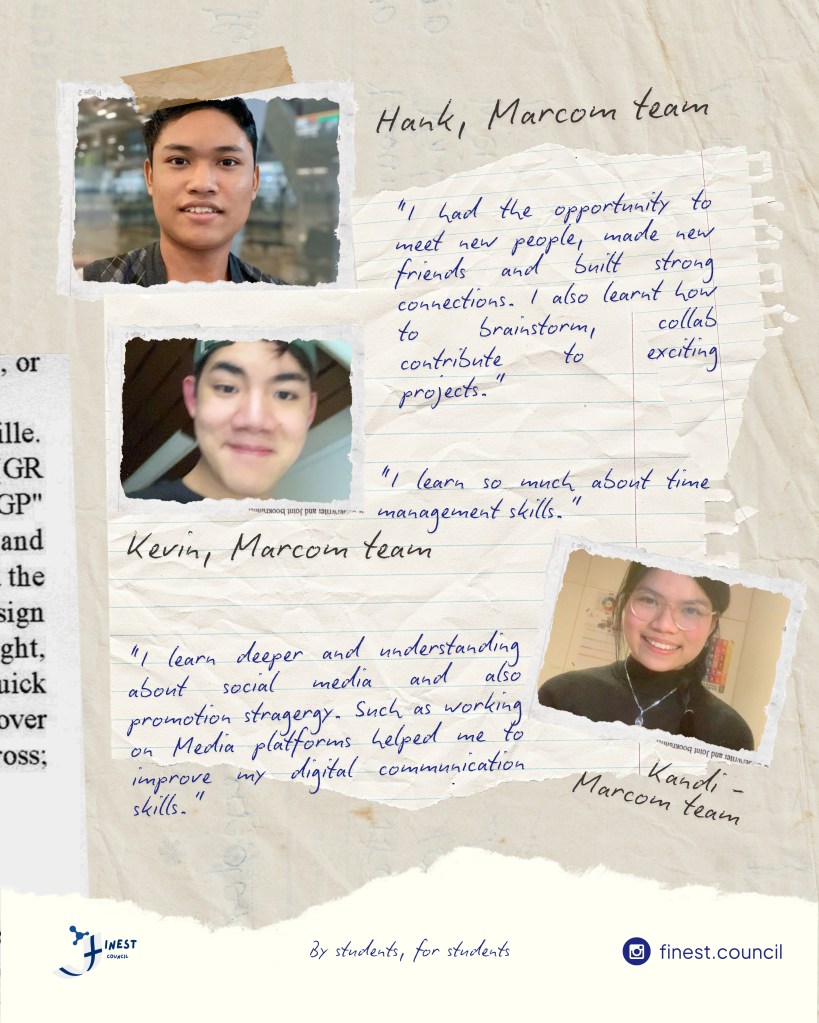 Hank, Marcom team
"I had the opportunity to
meet new people, made new
friends and built strong
connections. I also learnt how
to brainstorm, collab
contribute to exciting
projects."
"I learn so much about time
management skills."
Kevin, Marcom team
"I learn deeper and understanding
about social media and also
promotion stragergy. Such as working
on Media platforms helped me to
improve my digital communication
skills."
Kandi -
Marcom team
Page 2
and Joint
and Joint
, or
ille.
GR
GP"
and
the
sign
ght,
uick
over
ross;
FINEST
COUNCIL
By students, for students
finest.council